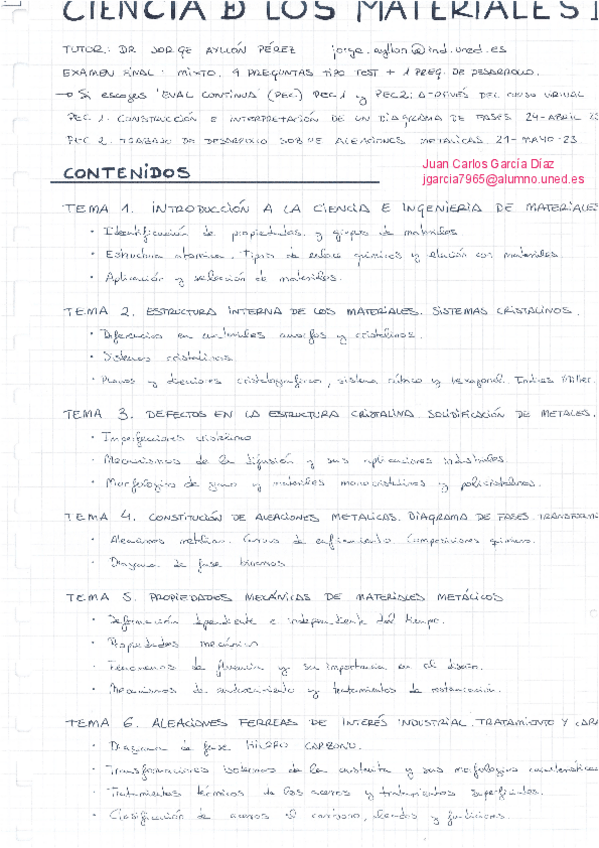 CIENCIA D LOS MATERIALES I
TUTOR: DR JORGE AYLLÓN PÉREZ jorge.ayllon@ind.uned.es
EXAMEN FINAL: MIXTO. 9 PREGUNTAS TIPO TEST + 1 PREG. DE DESARROLLO.
→ Si escoges "EVAL CONTINUA" (PEC) PEC 1 y PEC2: A TRAVÉS DEL CURSO VIRTUAL
PEC 1. CONSTRUCCIÓN E INTERPRETACIÓN DE UN DIAGRAMA DE FASES 24-ABRIL 23
PEC 2. TRABAJO DE DESARROLLO SOBRE ALEACIONES METALICAS. 21-MAYO-23
Juan Carlos García Díaz
CONTENIDOS
jgarcia7965@alumno.uned.es
TEMA 1. INTRODUCCIÓN A LA CIENCIA E INGENIERIA DE MATERIALES
• Identificación de propiedades y grupos de materiales
• Estructura atomica. Tipos de enlace químicos y relación con materiales.
• Aplicación y selección de materiales.
TEMA 2. ESTRUCTURA INTERNA DE LOS MATERIALES. SISTEMAS CRISTALINOS.
• Diferencias en materiales amorfos y cristalinos.
• Sistemas cristalinos.
• Planos y direcciones cristalograficas, sistema cúbico y hexagonal. Indices Miller.
TEMA 3. DEFECTOS EN LA ESTRUCTURA CRISTALINA. SOLIDIFICACIÓN DE METALES.
• Imperfecciones
• Mecanismos de la difusión y sus aplicaciones industriales.
• Morfologias de grano y materiales monocristalinos y policristalinos.
TEMA 4. CONSTITUCIÓN DE ALEACIONES METALICAS. DIAGRAMA DE FASES. TRANSFORM
• Aleaciones metálicas. Curvas de enfriamiento. Composiciones
• Diagrama de fase binarios
TEMA 5. PROPIEDADES MECÁNICAS DE MATERIALES METÁLICOS
• Deformación dependiente e independiente del tiempo.
• Propiedades mecánicas
• Fenomenos de fluencia y su importancia en el diseño.
• Mecanismos de endurecimiento y tratamientos de restauración.
TEMA 6. ALEACIONES FERREAS DE INTERÉS INDUSTRIAL. TRATAMIENTO Y CARA
• Diagrama de fase HIERRO CARBONO.
• Transformaciones isotermas de la austenita y sus morfologias caracteristicas
• Tratamientos térmicos de los aceros y tratamientos superficiales.
• Clasificación de aceros al carbono, aleados y fundiciones.